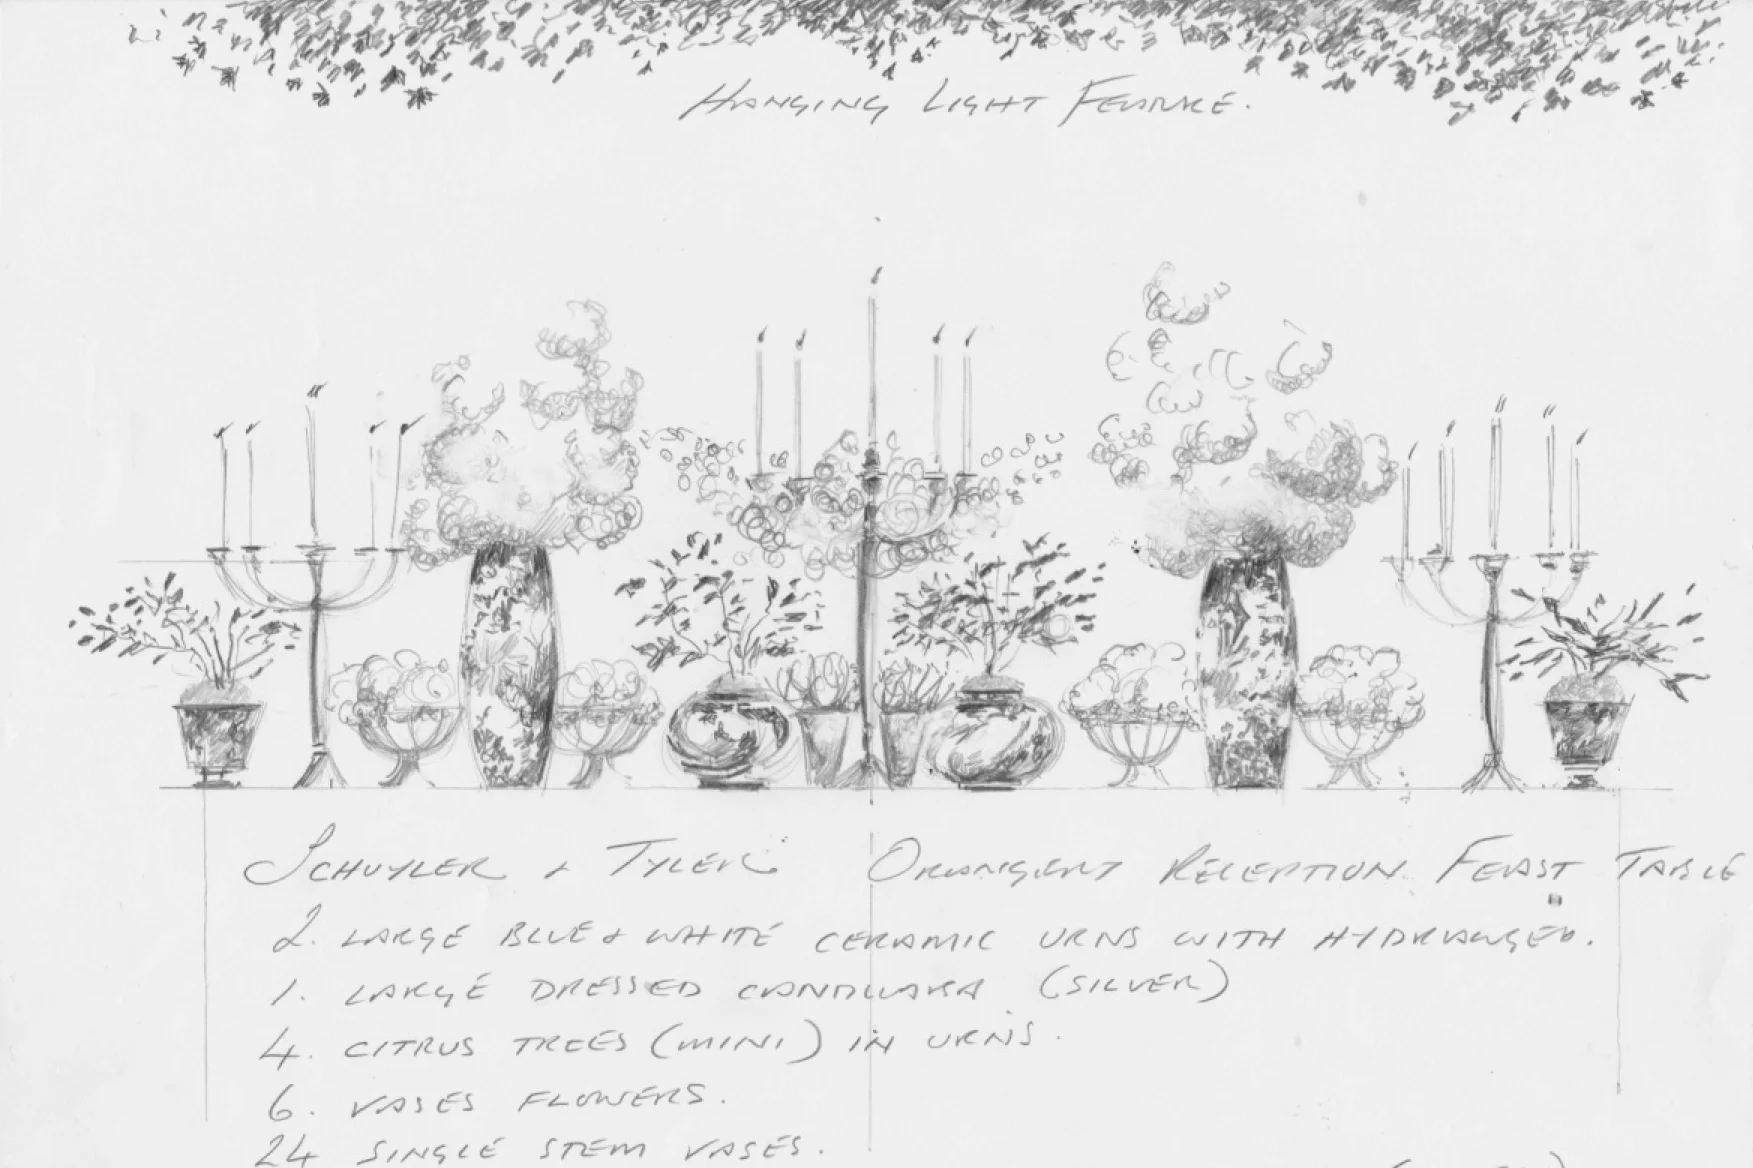 HANGING LIGHT FEATURE.
SCHUYLER + TYLER ORANGERY RECEPTION FEAST TABLE
2. LARGE BLUE + WHITE CERAMIC URNS WITH HYDRANGEA.
1. LARGE DRESSED CANDELABRA (SILVER)
4. CITRUS TREES (MINI) IN URNS.
6. VASES FLOWERS.
24 SINGLE STEM VASES.